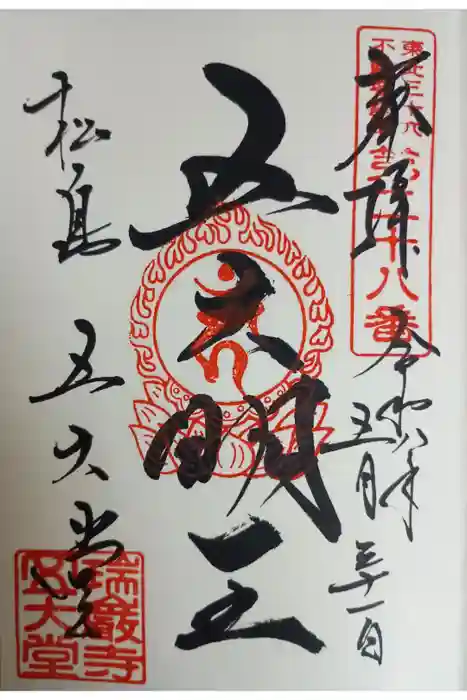 東北三十六
不動尊
第二十八番
奉拝
令和八年
五月三十一日
五大明王
松島 五大堂
瑞巖寺
五大堂